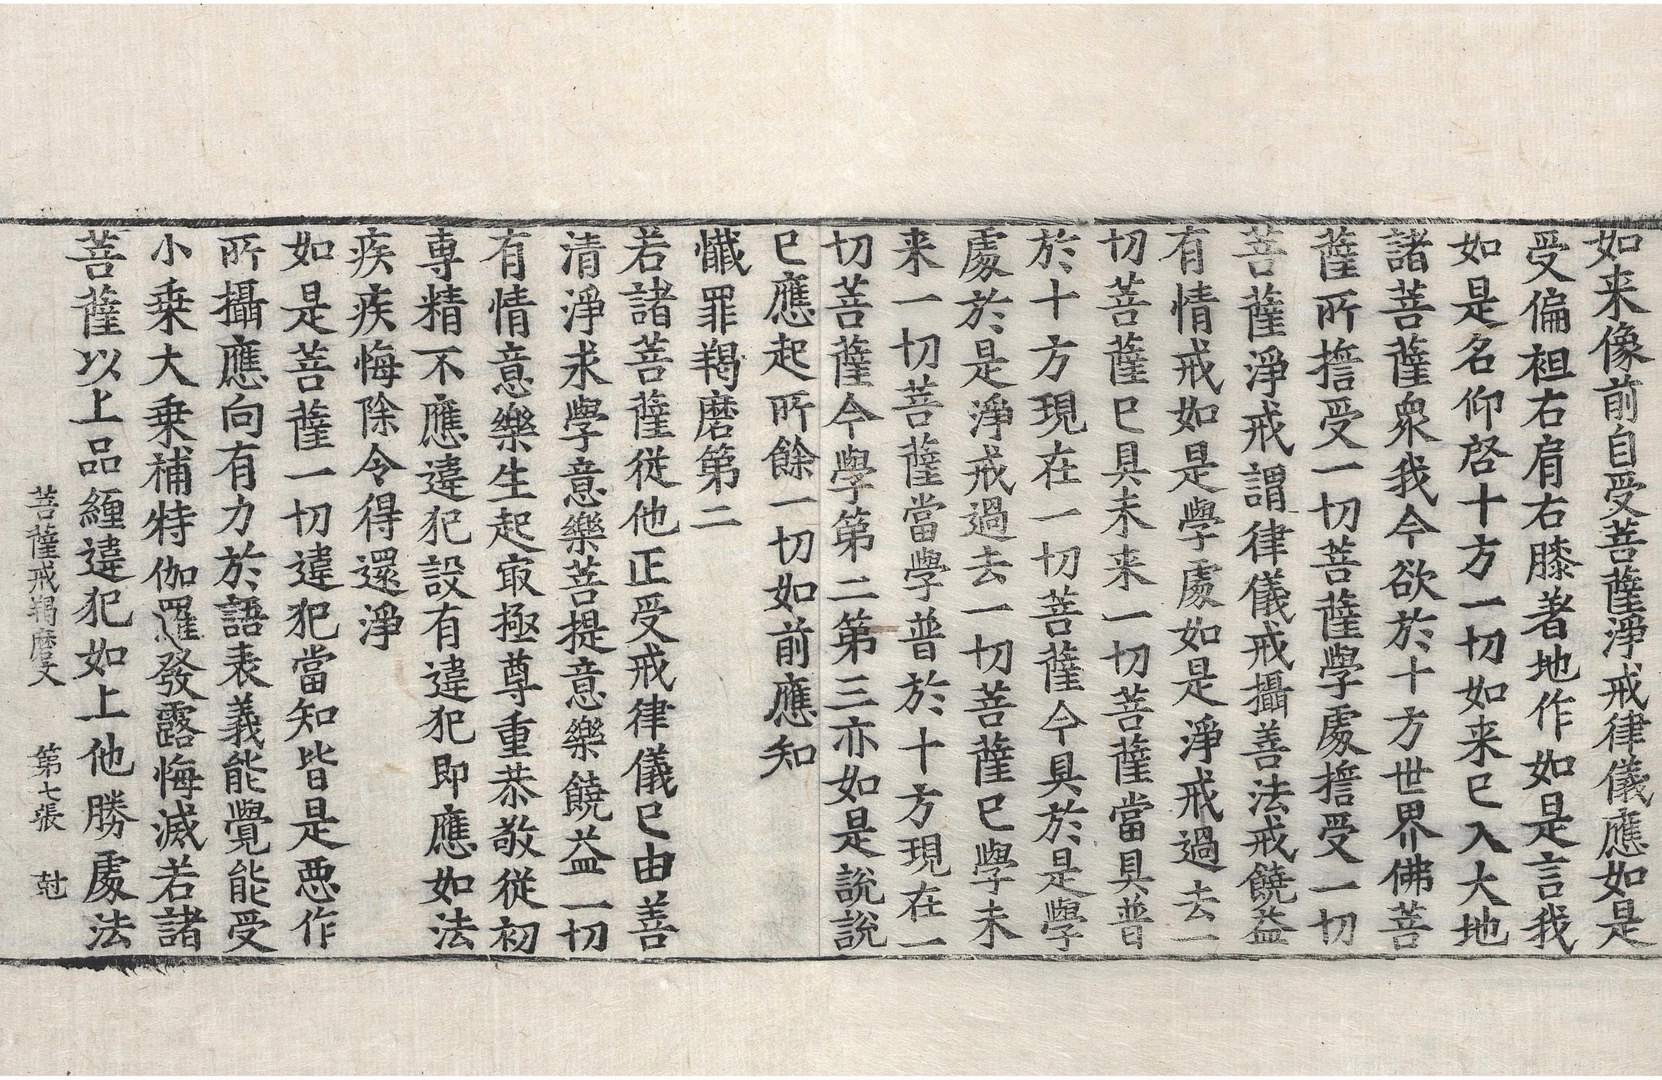 如来像前自受菩薩淨戒律儀應如是
受偏袒右肩右膝著地作如是言我
如是名仰啓十方一切如来已入大地
諸菩薩衆我今欲於十方世界佛菩
薩所誓受一切菩薩學處誓受一切
菩薩淨戒謂律儀戒攝善法戒饒益
有情戒如是學處如是淨戒過去一
切菩薩已具未来一切菩薩當具普
於十方現在一切菩薩今具於是學
處於是淨戒過去一切菩薩已學未
来一切菩薩當學普於十方現在一
切菩薩今學第二第三亦如是說說
已應起所餘一切如前應知
懺罪羯磨第二
若諸菩薩從他正受戒律儀已由善
清淨求學意樂菩提意樂饒益一切
有情意樂生起㝡極尊重恭敬從初
専精不應違犯設有違犯即應如法
疾疾悔除令得還淨
如是菩薩一切違犯當知皆是惡作
所攝應向有力於語表義能覺能受
小乗大乗補特伽羅發露悔滅若諸
菩薩以上品纏違犯如上他勝處法
菩薩戒羯磨文 第七張 尅